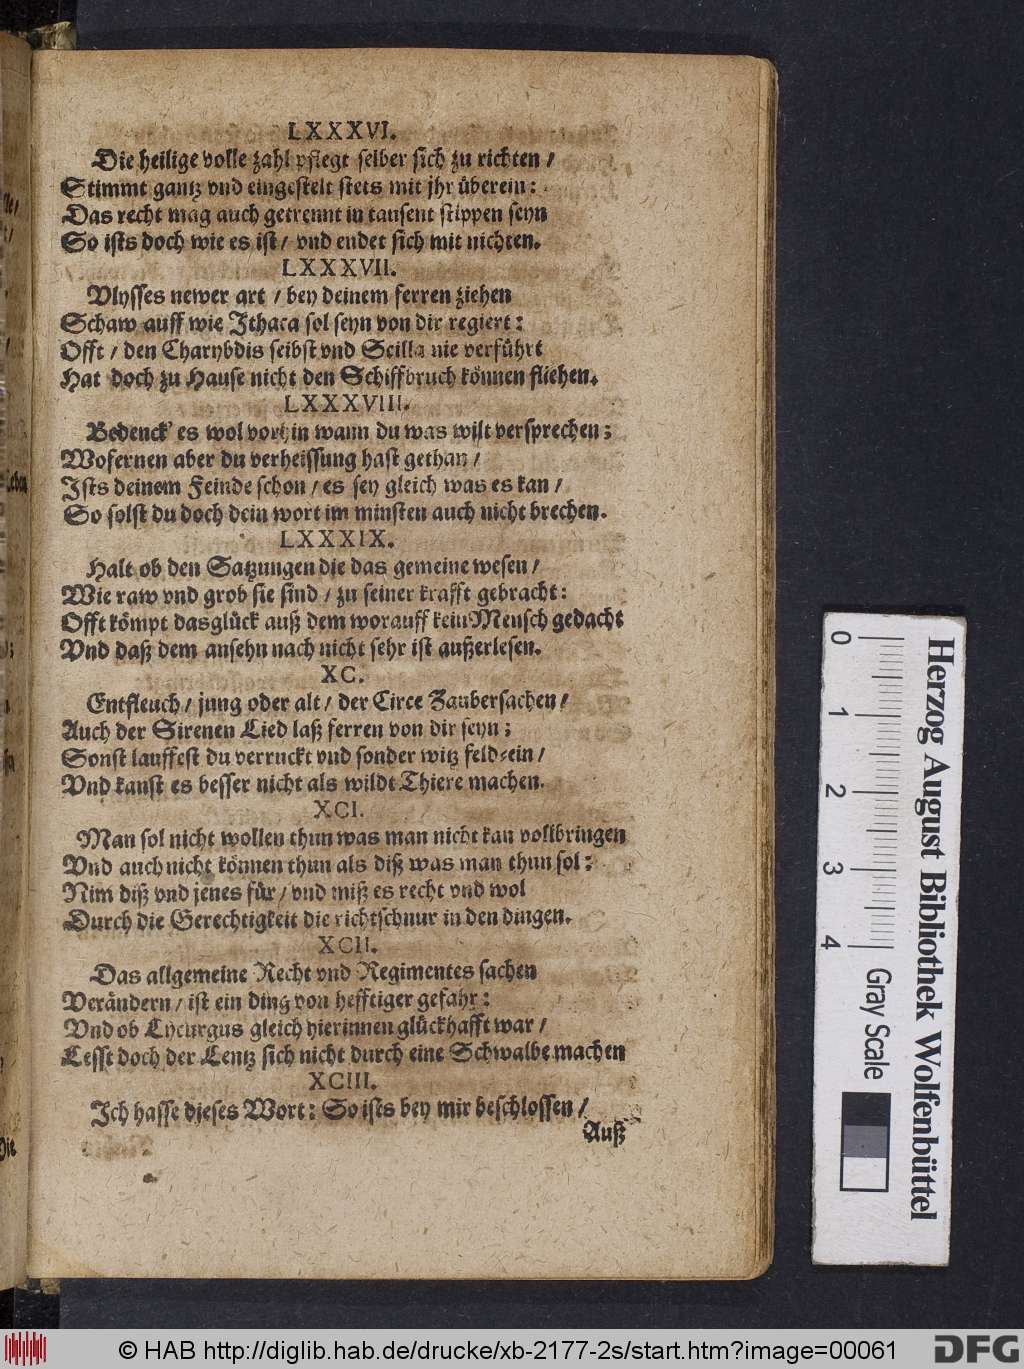 LXXXVI.
Die heilige volle zahl pflegt selber sich zu richten /
Stimmt gantz vnd eingestelt stets mit jhr überein:
Das recht mag auch getrennt in tausent stippen seyn
So ists doch wie es ist / vnd endet sich mit nichten.
LXXXVII.
Vlysses newer art / bey deinem ferren ziehen
Schaw auff wie Ithaca sol seyn von dir regiert:
Offt / den Charybdis selbst vnd Scilla nie verführt
Hat doch zu Hause nicht den Schiffbruch können fliehen.
LXXXVIII.
Bedenck' es wol vorhin wann du was wilt versprechen;
Wofernen aber du verheissung hast gethan /
Ists deinem Feinde schon / es sey gleich was es kan /
So solst du doch dein wort im minsten auch nicht brechen.
LXXXIX.
Halt ob den Satzungen die das gemeine wesen /
Wie raw vnd grob sie sind / zu seiner krafft gebracht:
Offt kömpt das glück auß dem worauff kein Mensch gedacht
Vnd daß dem ansehn nach nicht sehr ist außerlesen.
XC.
Entfleuch / jung oder alt / der Circe Zaubersachen /
Auch der Sirenen Lied laß ferren von dir seyn;
Sonst lauffest du verruckt vnd sonder witz feld-ein /
Vnd kanst es besser nicht als wildt Thiere machen.
XCI.
Man sol nicht wollen thun was man nicht kan vollbringen
Vnd auch nicht können thun als diß was man thun sol:
Nim diß vnd jenes für / vnd miß es recht vnd wol
Durch die Gerechtigkeit die richtschnur in den dingen.
XCII.
Das allgemeine Recht vnd Regimentes sachen
Verändern / ist ein ding von hefftiger gefahr:
Vnd ob Lycurgus gleich hierinnen glückhafft war /
Lesst doch der Lentz sich nicht durch eine Schwalbe machen
XCIII.
Ich hasse dieses Wort: So ists bey mir beschlossen /
Auß
0 1 2 3 4
Herzog August Bibliothek Wolfenbüttel
Gray Scale
© HAB http://diglib.hab.de/drucke/xb-2177-2s/start.htm?image=00061
DFG